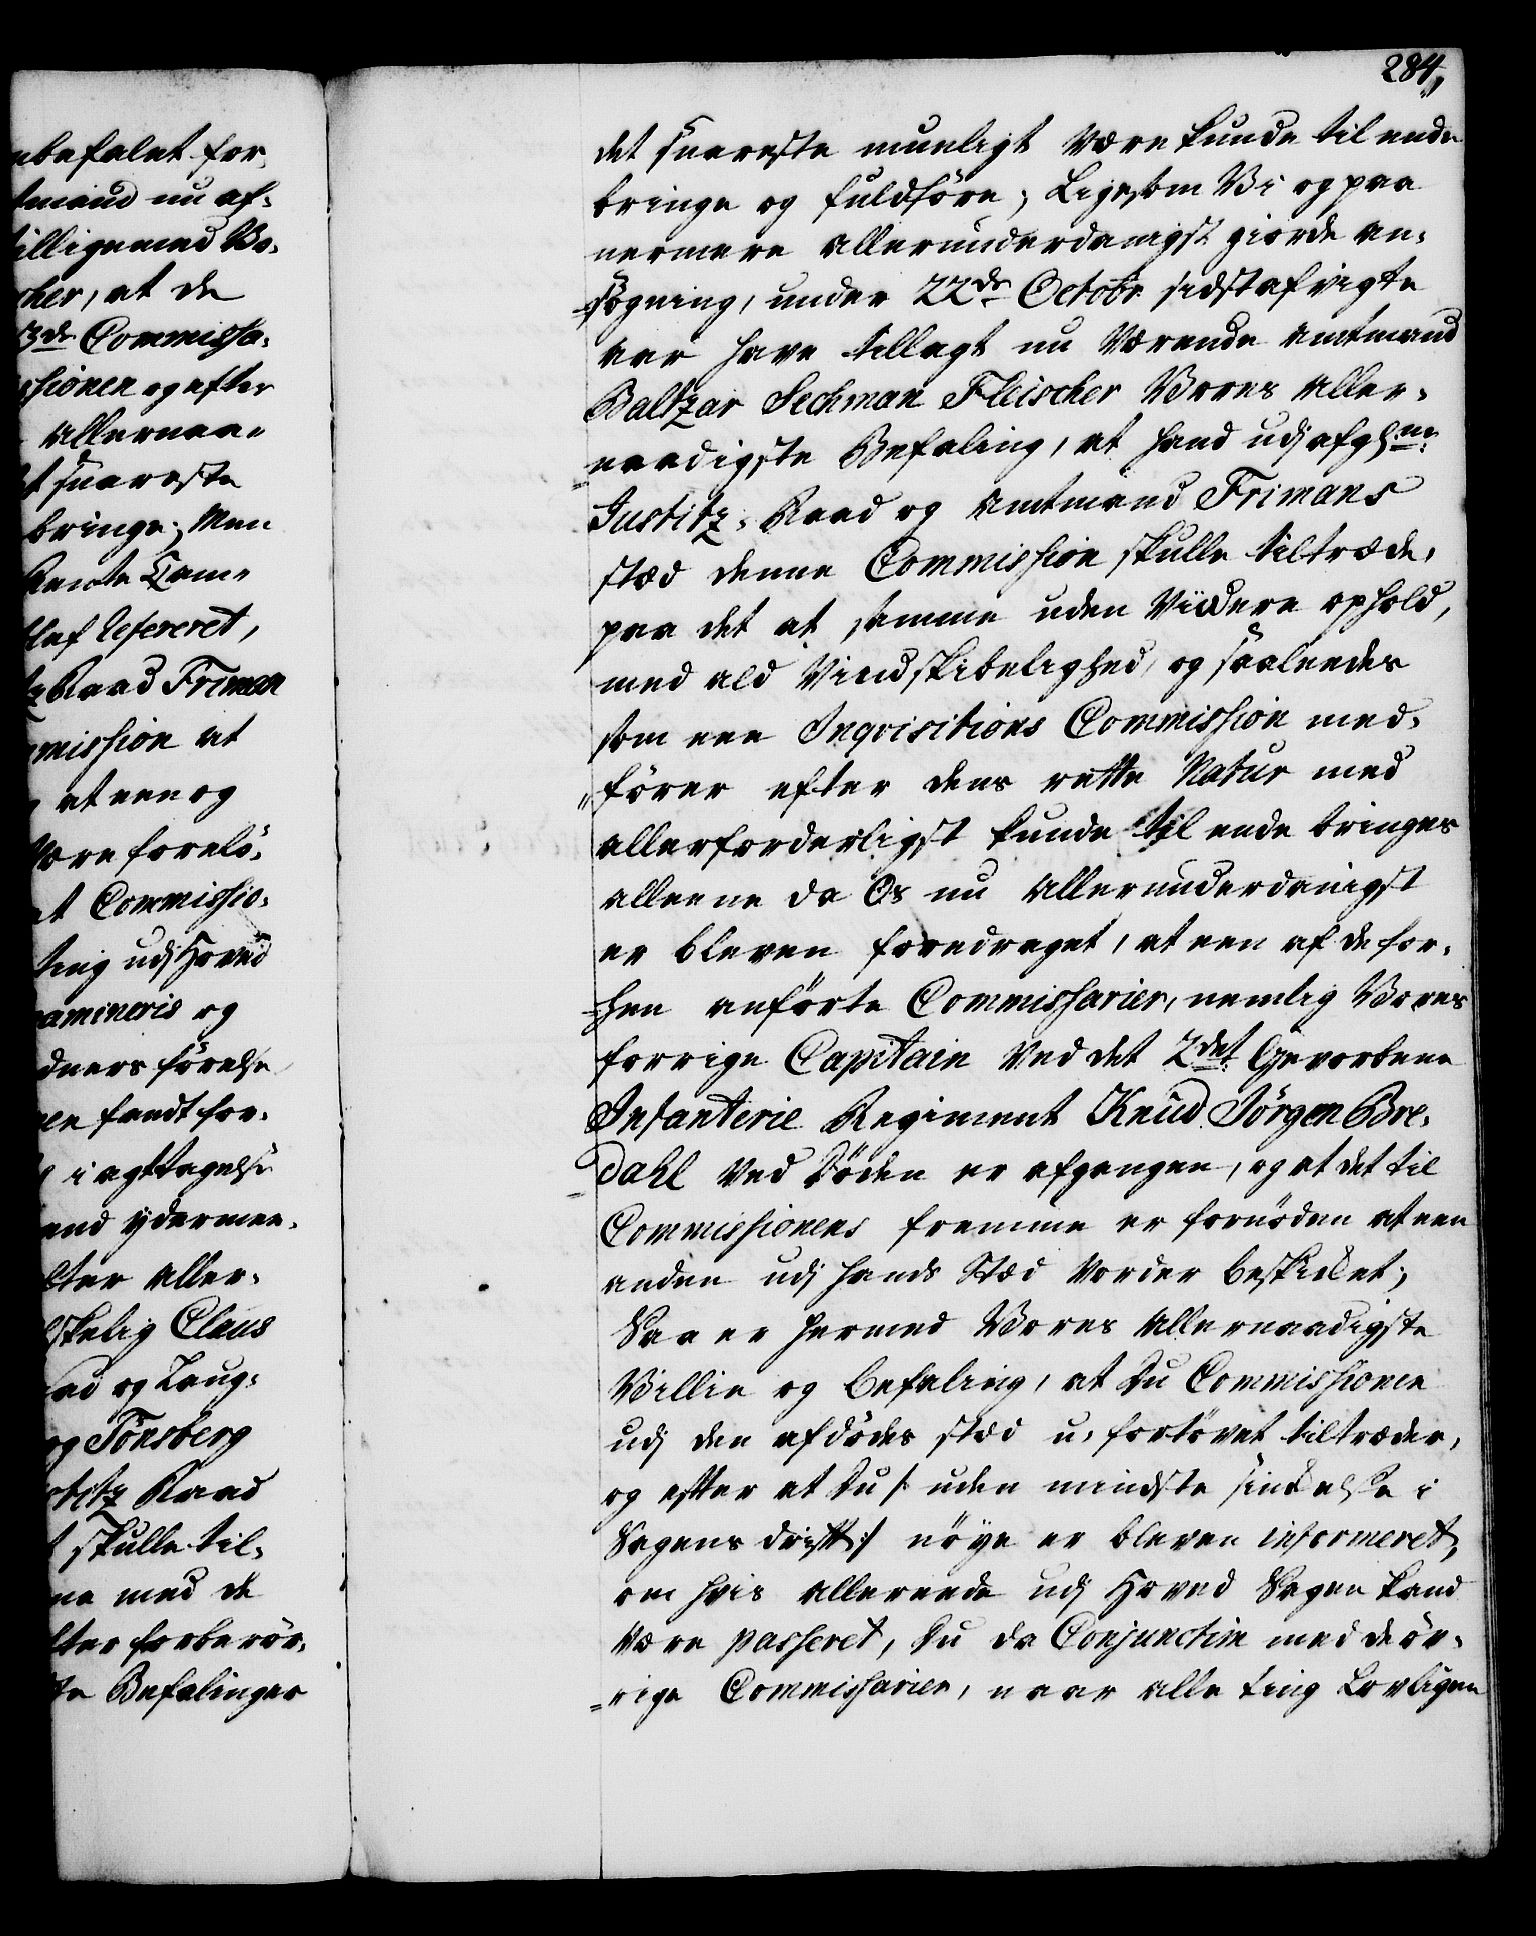 nbefalet for
tmand nu af-
tilligemed Vo-
cher, at de
3de Commissa-
ssionen og efter
allernaa-
t snareste
bringe; Men
Rente Cam-
refereret,
Raad Friman
mmission at
at een og
være forelö-
t Commissio-
ting udj Hoved
amineris og
dners förelse
en fandt for-
i agttagelse
and ydermee-
ter Aller-
skelig Claus
ad og Laug-
og Tönsberg
stitz Raad
skulle til-
ne med de
ter forberör-
te Befalinger
284,
det snareste mueligt være kunde til ende
bringe og fuldföre; Ligesom Vi og paa
nermere allerunderdanigst giorde an-
sögning, under 22de Octobr sidstafvigte
aar have tillagt nu værende Amtmand
Baltzar Sechman Fleischer Vores Aller-
naadigste Befaling, at hand udj afgl:ne
Justitz-Raad og Amtmand Frimans
stæd denne Commission skulle tiltræde,
paa det at samme uden viidere ophold,
med ald Vindskibelighed, og saaleedes
som een Inqvisitions Commission med-
förer efter dens rette Natur med
allerforderligst kunde til ende bringes
alleene da Os nu allerunderdanigst
er bleven foredraget, at een af de for-
hen anförte Commissarier, nemlig Vores
forrige Capitain ved det 2det Gevorbene
Infanterie Regiment Knud Jörgen Bre-
dahl ved Döden er afgangen, og at det til
Commissionens fremme er fornöden at een
anden udj hands Stæd vorder beskicket;
Saa er hermed Vores Allernaadigste
Villie og befaling, at Du Commissionen
udj den afdödes stæd u-fortövet tiltræder,
og efter at Du /: uden mindste sinckelse i
Sagens drifft :/ nöye er bleven informeret,
om hvis allereede udj Hoved Sagen kand
være passeret, Du da Conjunctim med de öv-
rige Commissarier, naar alle ting Lovligen